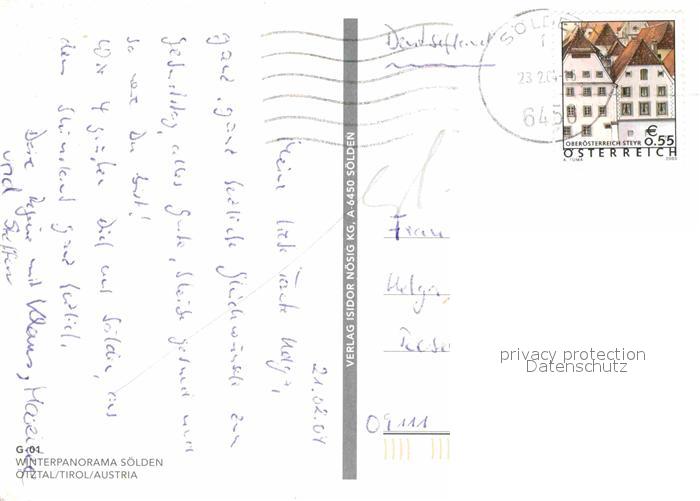 21.02.04
Meine liebe Tante Helga,
ganz, ganz herzliche Glückwünsche zum
Geburtstag, alles Gute, bleibe gesund und
so wie Du bist!
Wir 4 grüßen Dich aus Sölden, aus
dem ganz herzlich.
Deine Regine mit Klaus,
und Steffen
G-01
WINTERPANORAMA SÖLDEN
ÖTZTAL/TIROL/AUSTRIA
VERLAG ISIDOR NÖSIG KG, A-6450 SÖLDEN
Deutschland
SÖLDEN
23.2.04
6450
OBERÖSTERREICH STEYR
€ 0.55
ÖSTERREICH
2003
Frau
Helga
09111
privacy protection
Datenschutz